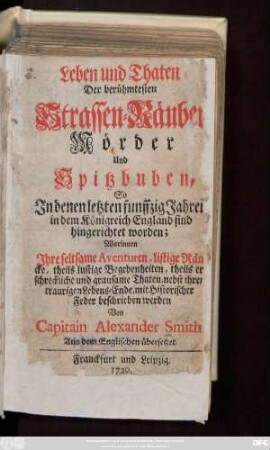 Leben und Thaten
Der berühmtesten
Strassen-Räuber
Mörder
Und
Spitzbuben,
So
In denen letzten funffzig Jahren
in dem Königreich England sind
hingerichtet worden;
Worinnen
Ihre seltsame Aventuren, listige Rän
cke, theils lustige Begebenheiten, theils er
schreckliche und grausame Thaten, nebst ihrem
traurigen Lebens-Ende, mit Historischer
Feder beschrieben werden
Von
Capitain Alexander Smith
Aus dem Englischen übersetzet
Franckfurt und Leipzig,
1720.